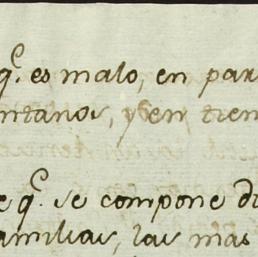 q.ᵉ es malo, en par
ntanos, y en tiem
e q.ᵉ se compone d
amilias, las mas